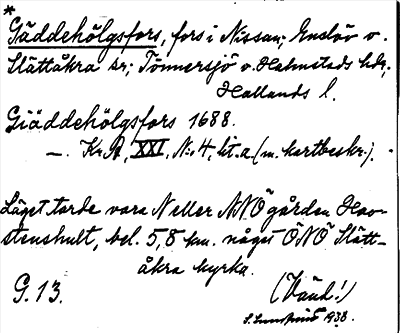 *
Gäddehölgsfors, fors i Nissan; Enslöv o.
Slättåkra sr; Tönnersjö o. Halmstads hdr;
Hallands l.
Giäddehölgsfors 1688.
—. Kr.A, XXI, N:o 4, lit. a (m. kartbeskr.).
Läget torde vara N eller NNÖ gården Hav-
stenshult, bel. 5,8 km. något ÖNÖ Slätt-
åkra kyrka.
G. 13.
(Vänd!)
1938.